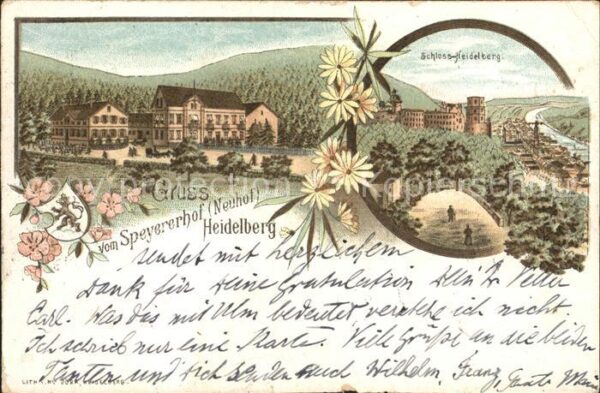 Schloss-Heidelberg.
Gruss
vom Speyererhof (Neuhof)
Heidelberg
sendet mit herzlichem
Dank für Deine Gratulation Dein Vetter
Carl. Was das mit Ulm bedeutet verstehe ich nicht.
Ich schrieb nur eine Karte. Viele Grüße an die beiden
Tanten und Dich senden auch Wilhelm, Franz, Tante
LITH. HEIDELBERG.